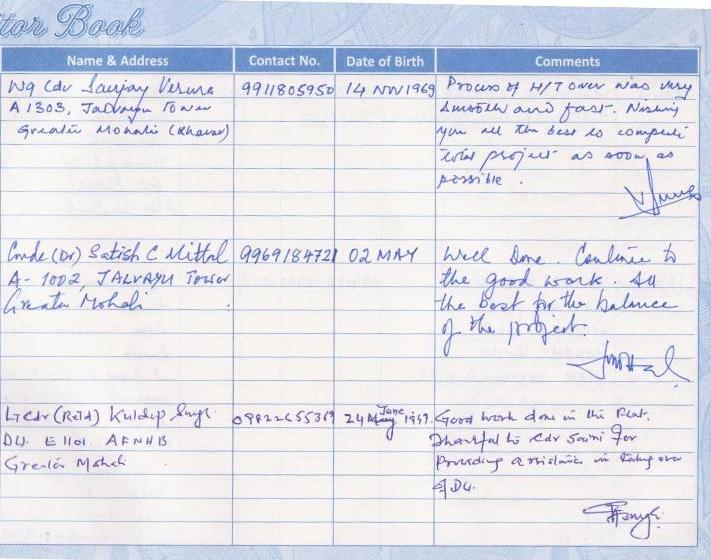 itor Book
Name & Address Contact No. Date of Birth Comments
Wg Cdr Sanjay Verma 9911805950 14 NOV 1969 Process of H/T over was very
A 1303, Jalvayu Tower smooth and fast. Wishing
Greater Mohali (Kharar) you all the best to complete
total project as soon as
possible.
Cmde (Dr) Satish C Mittal 9969184721 02 MAY Well Done. Continue to
A-1002, JALVAYU Tower the good work. All
Greater Mohali the best for the balance
of the project.
Lt Cdr (Retd) Kuldip Singh 24 June Good work done in the Flat.
DU. E 1101 AFNHB Thankful to Cdr Saini For
Greater Mohali Providing assistance in taking over
of DU.